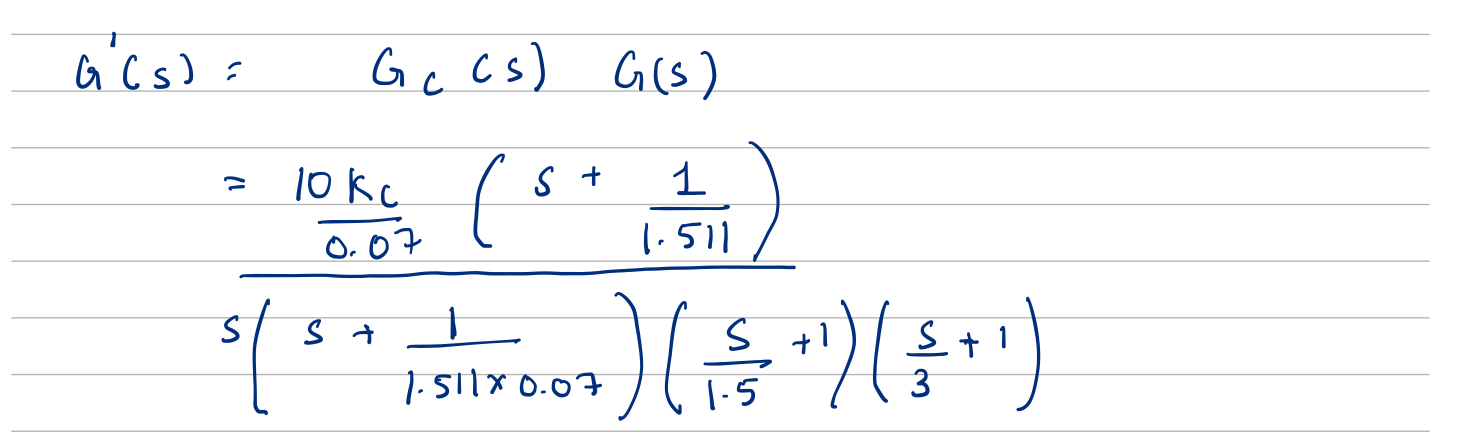 G'(s) = Gc(s) G(s)
= 10Kc/0.07 (s + 1/1.511)
s(s + 1/1.511×0.07)(s/1.5 +1)(s/3 + 1)